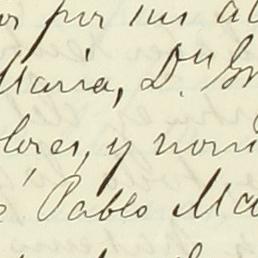 por sus
Maria, Dn
lores, y nom
é Pablo Ma